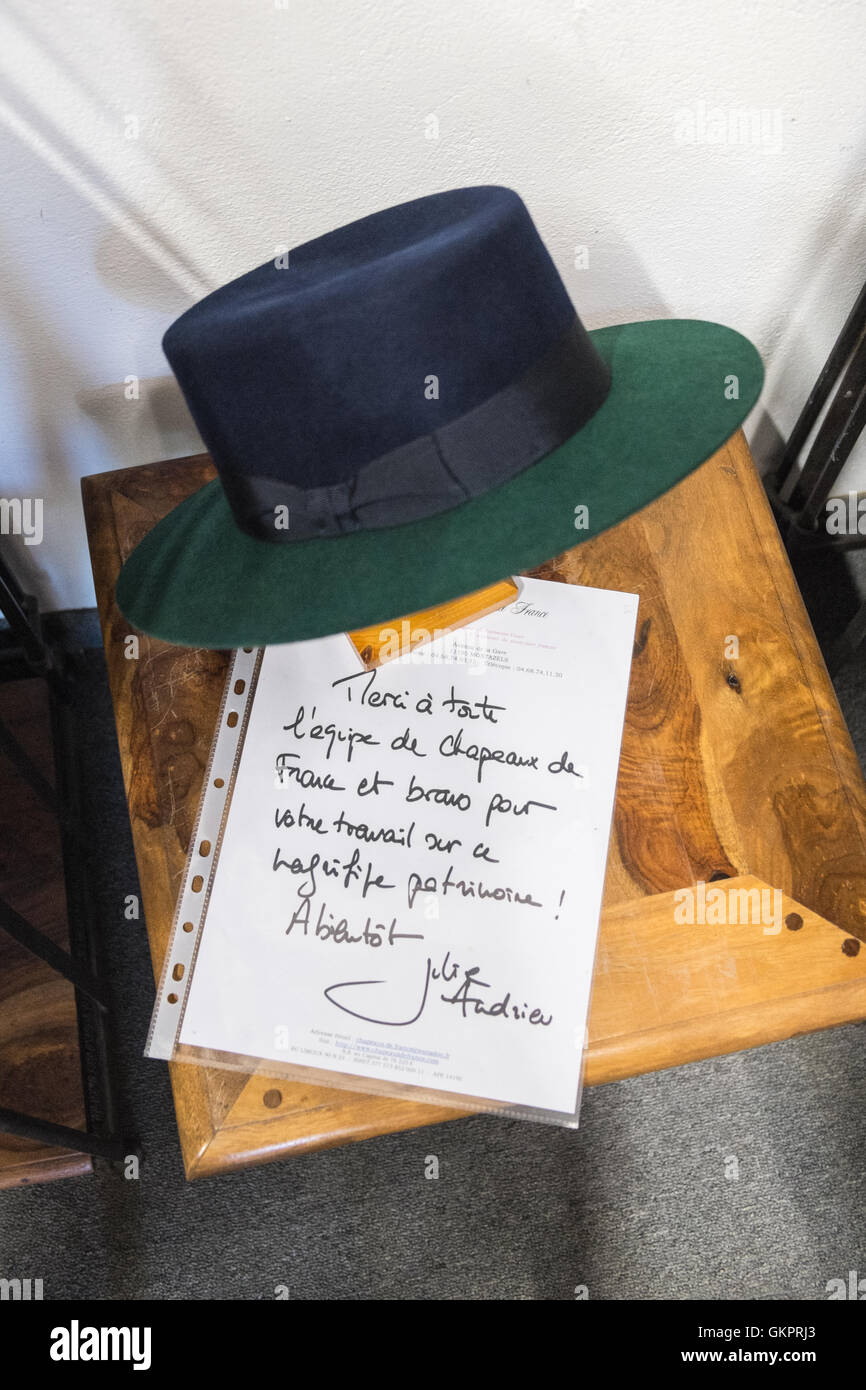 France
Avenue de la Gare
11190 MONTAZELS
04.68.74.11.30
Merci à toute
l'équipe de chapeaux de
France et bravo pour
votre travail sur ce
magnifique patrimoine !
A bientôt
Julie
Andrieu
Adresse Email : chapeau.de.france@wanadoo.fr
Site : http://www.chapeaudefrance.com
alamy
Image ID: GKPRJ3
www.alamy.com